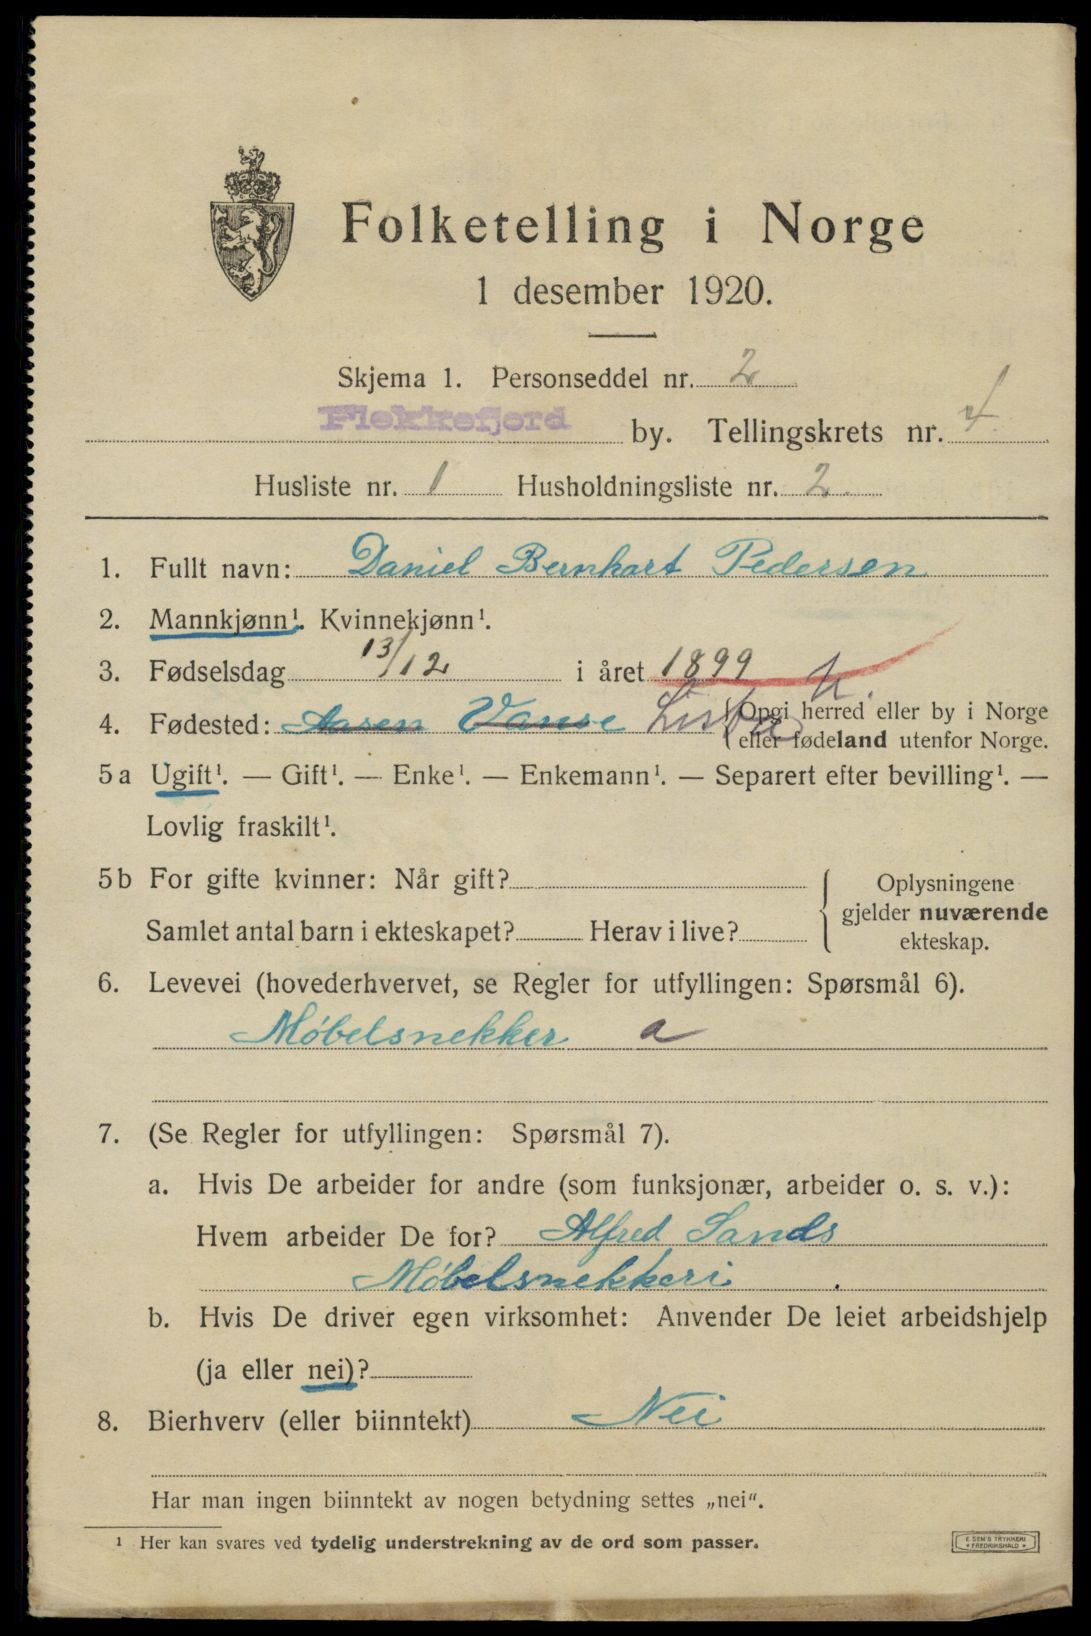 Folketelling i Norge
1 desember 1920.
Skjema 1. Personseddel nr. 2
Flekkefjord by. Tellingskrets nr. 4
Husliste nr. 1 Husholdningsliste nr. 2
1. Fullt navn: Daniel Bernhart Pedersen
2. Mannkjønn¹. Kvinnekjønn¹.
3. Fødselsdag 13/12 i året 1899
4. Fødested: Aasen Vanse Lista {Opgi herred eller by i Norge
eller fødeland utenfor Norge.
5a Ugift¹. — Gift¹. — Enke¹. — Enkemann¹. — Separert efter bevilling¹. —
Lovlig fraskilt¹.
5b For gifte kvinner: Når gift?
Samlet antal barn i ekteskapet? Herav i live?
Oplysningene
gjelder nuværende
ekteskap.
6. Levevei (hovederhvervet, se Regler for utfyllingen: Spørsmål 6).
Møbelsnekker a
7. (Se Regler for utfyllingen: Spørsmål 7).
a. Hvis De arbeider for andre (som funksjonær, arbeider o. s. v.):
Hvem arbeider De for? Alfred Sands
Møbelsnekkeri.
b. Hvis De driver egen virksomhet: Anvender De leiet arbeidshjelp
(ja eller nei)?
8. Bierhverv (eller biinntekt) Nei
Har man ingen biinntekt av nogen betydning settes „nei".
¹ Her kan svares ved tydelig understrekning av de ord som passer.
E. SEM'S TRYKKERI
FREDRIKSHALD